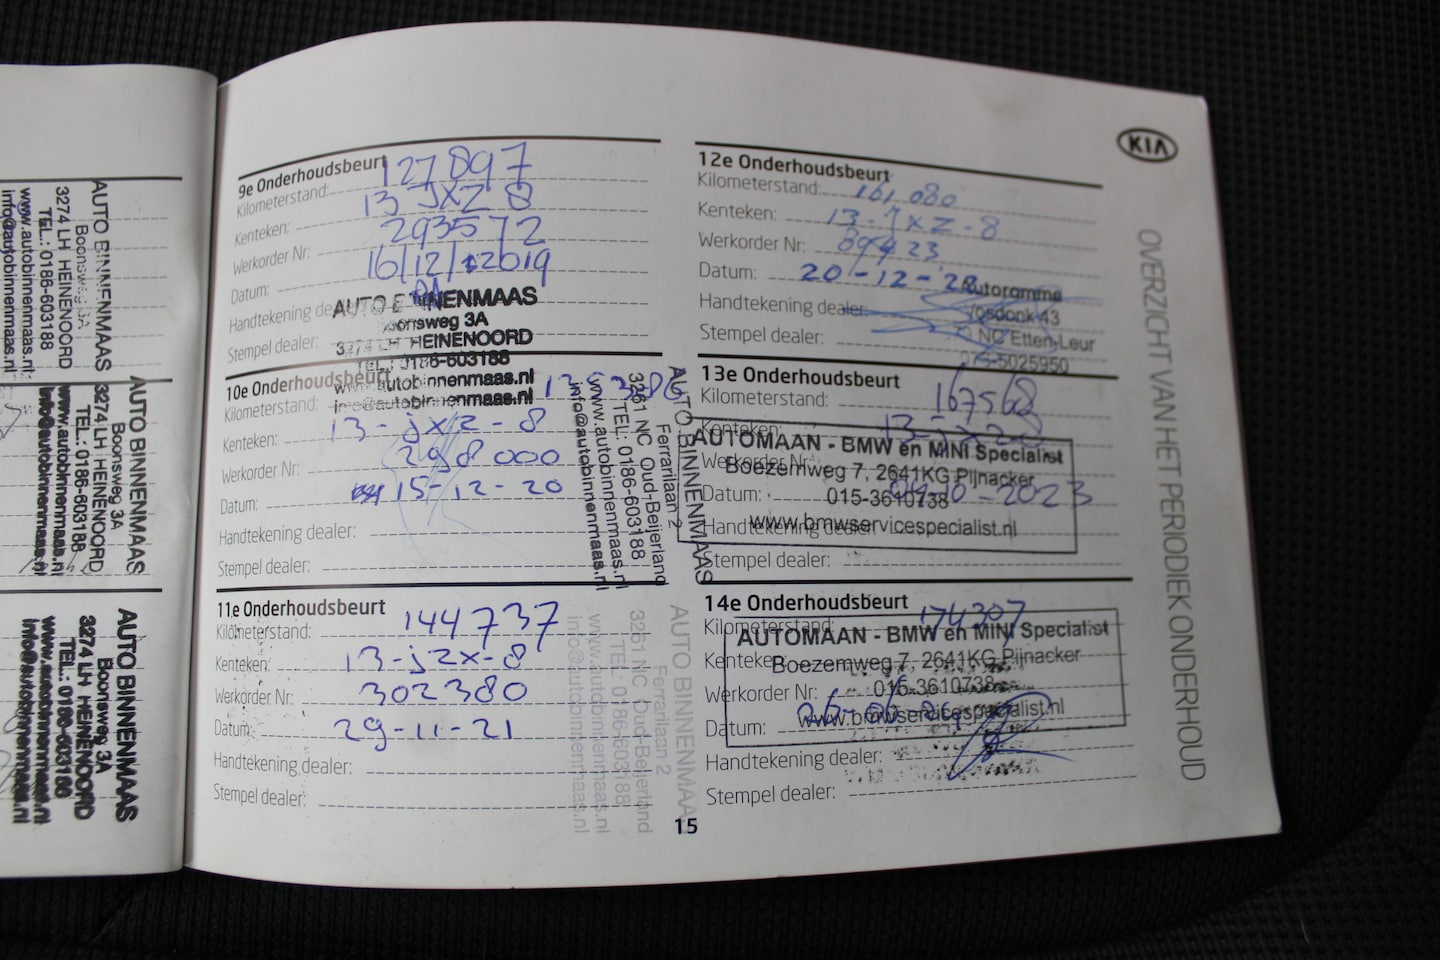 AUTO BINNENMAAS
Boonsweg 3A
3274 LH HEINENOORD
TEL.: 0186-603188
www.autobinnenmaas.nl
info@autobinnenmaas.nl
AUTO BINNENMAAS
Boonsweg 3A
3274 LH HEINENOORD
TEL.: 0186-603188
www.autobinnenmaas.nl
info@autobinnenmaas.nl
AUTO BINNENMAAS
Boonsweg 3A
3274 LH HEINENOORD
TEL.: 0186-603188
www.autobinnenmaas.nl
info@autobinnenmaas.nl
9e Onderhoudsbeurt
Kilometerstand: 127897
Kenteken: 13 JXZ 8
Werkorder Nr: 293572
Datum: 16/12/2019
Handtekening dealer:
Stempel dealer:
AUTO BINNENMAAS
Boonsweg 3A
3274 LH HEINENOORD
TEL.: 0186-603188
www.autobinnenmaas.nl
info@autobinnenmaas.nl
10e Onderhoudsbeurt
Kilometerstand:
Kenteken: 13-JXZ-8
Werkorder Nr: 298000
Datum: 15-12-20
Handtekening dealer:
Stempel dealer:
AUTO BINNENMAAS
Ferrarilaan 2
3261 NC Oud-Beijerland
TEL: 0186-603188
www.autobinnenmaas.nl
info@autobinnenmaas.nl
11e Onderhoudsbeurt
Kilometerstand: 144737
Kenteken: 13-jzx-8
Werkorder Nr: 302380
Datum: 29-11-21
Handtekening dealer:
Stempel dealer:
AUTO BINNENMAA
Ferrarilaan 2
3261 NC Oud-Beijerland
TEL: 0186-603188
www.autobinnenmaas.nl
info@autobinnenmaas.nl
15
KIA
OVERZICHT VAN HET PERIODIEK ONDERHOUD
12e Onderhoudsbeurt
Kilometerstand: 161 080
Kenteken: 13-JXZ-8
Werkorder Nr:
Datum: 20-12-
Handtekening dealer:
Stempel dealer:
Vosdonk 43
NC Etten-Leur
5025950
13e Onderhoudsbeurt
Kilometerstand: 167568
Kenteken: 13-JXZ8
Werkorder Nr:
Datum: -10-2023
Handtekening dealer:
Stempel dealer:
AUTOMAAN - BMW en MINI Specialist
Boezemweg 7, 2641KG Pijnacker
015-3610738
www.bmwservicespecialist.nl
14e Onderhoudsbeurt
Kilometerstand: 174307
Kenteken:
Werkorder Nr:
Datum:
Handtekening dealer:
Stempel dealer:
AUTOMAAN - BMW en MINI Specialist
Boezemweg 7, 2641KG Pijnacker
015-3610738
www.bmwservicespecialist.nl